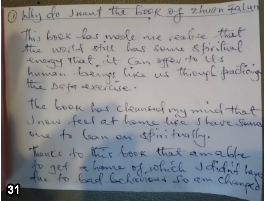 ① Why do I want the book of Zhuan Falun
This book has made me realize that
the world still has some spiritual
energy that it can offer to us
human beings like us through practicing
the Dafa exercise.
The book has cleansed my mind that
I now feel at home like I have some
one to lean on spiritually.
Thanks to this book that am able
to get a home of which I didn't have
due to bad behaviour so am changed
31